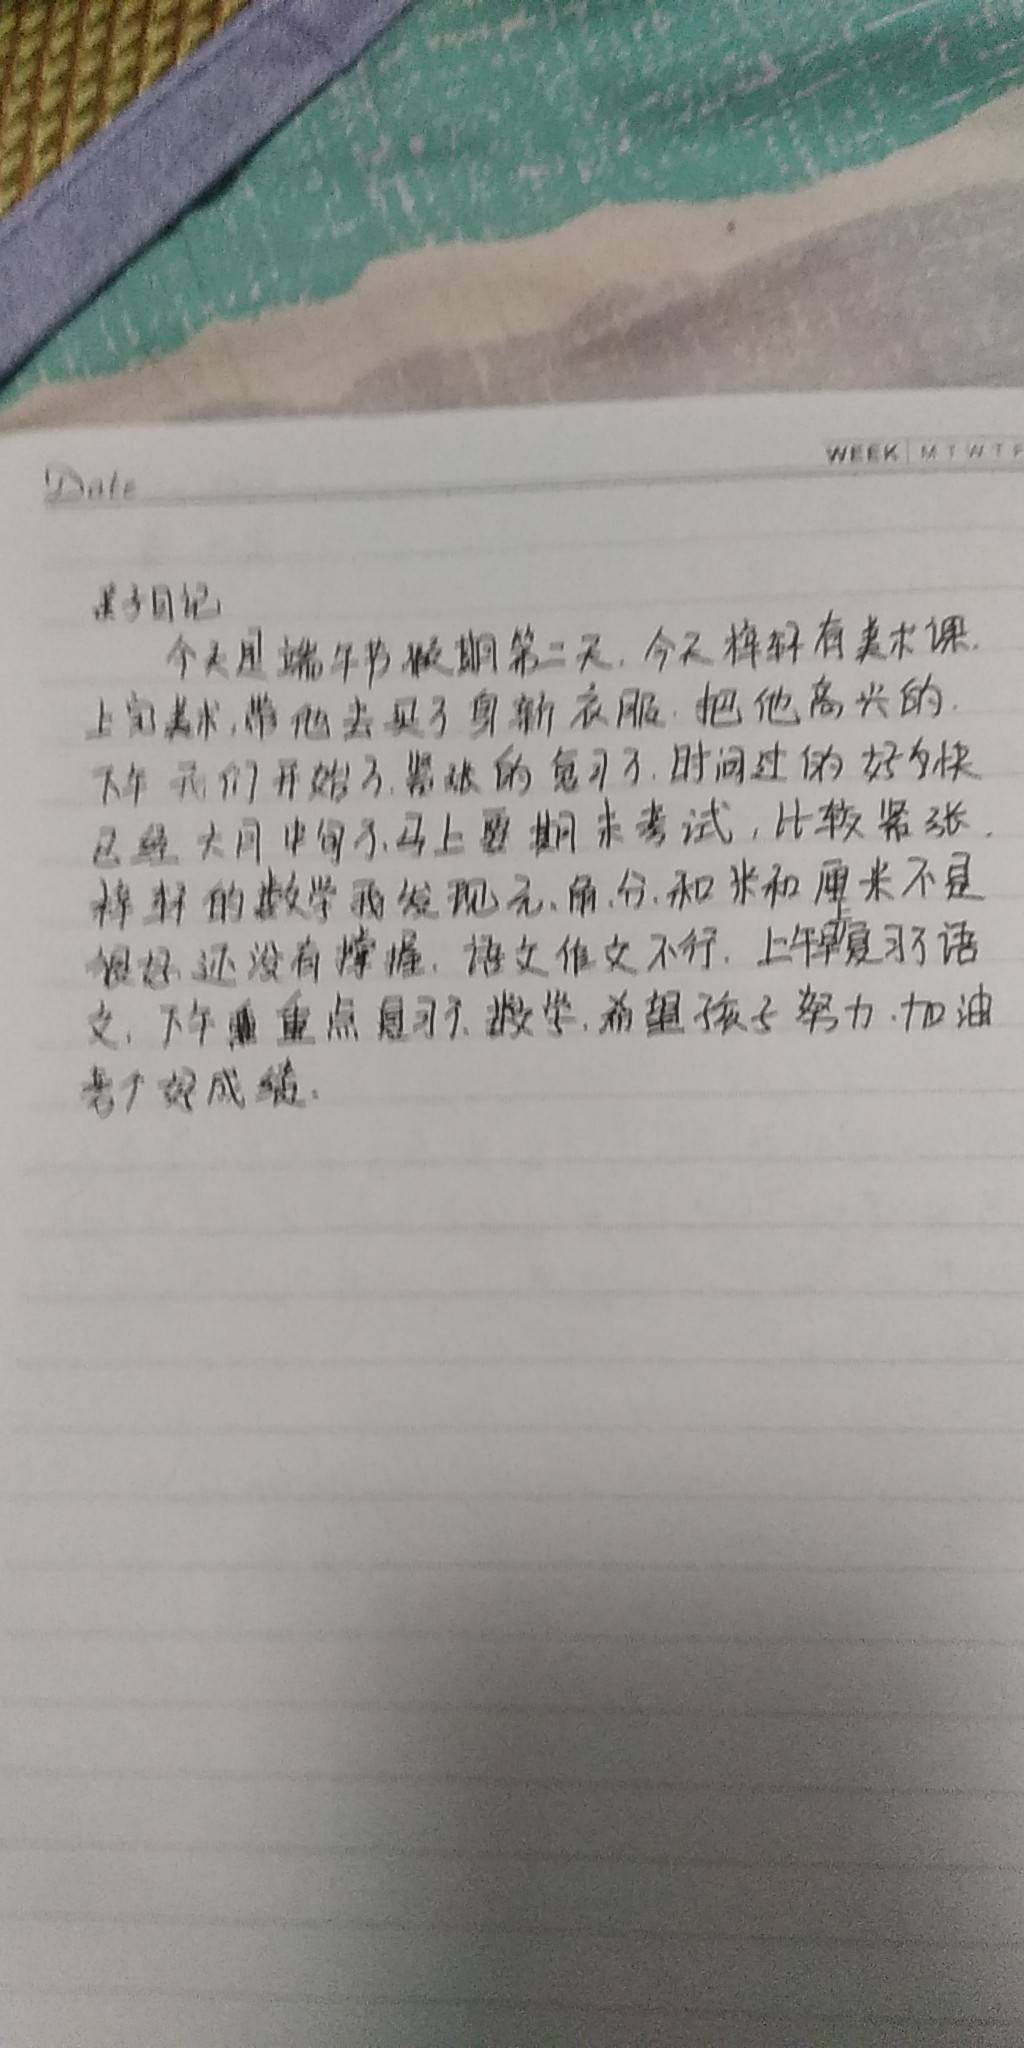 Date
WEEK M T W T F
亲子日记
今天是端午节假期第二天.今天梓轩有美术课.
上完美术,带他去买了身新衣服.把他高兴的.
下午我们开始了.紧张的复习了.时间过的好多快
已经六月中旬了.马上要期末考试,比较紧张.
梓轩的数学我发现元、角、分.和米和厘米不是
很好.还没有掌握.语文作文不行.上午早复习了语
文.下午重点复习了.数学.希望孩子努力.加油
考个好成绩.